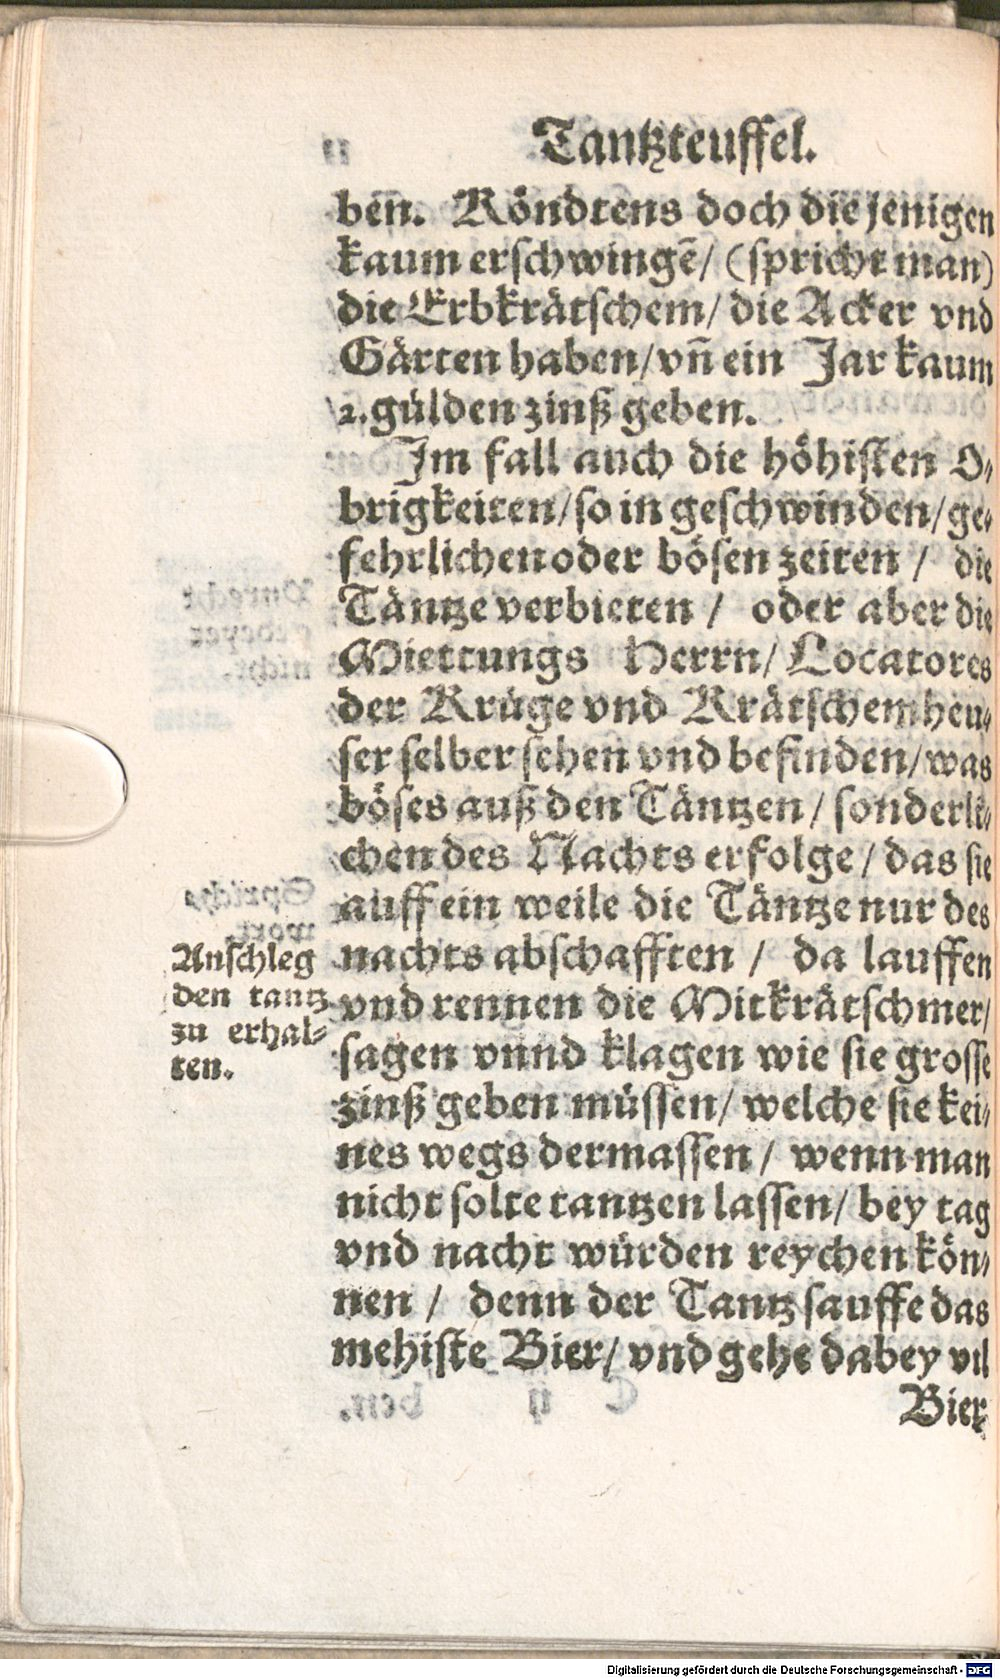 Tantzteuffel.
ben. Köndtens doch die jenigen
kaum erschwingẽ/ (spricht man)
die Erbkrätschem/ die Acker vnd
Gärten haben/ vñ ein Jar kaum
2. gülden zinß geben.
Im fall auch die höhisten O-
brigkeiten/ so in geschwinden/ ge-
fehrlichen oder bösen zeiten / die
Täntze verbieten / oder aber die
Miettungs Herrn/ Locatores
der Krüge vnd Krätschemheu-
ser selber sehen vnd befinden/ was
böses auß den Täntzen / sonderli-
chen des Nachts erfolge / das sie
auff ein weile die Täntze nur des
nachts abschafften / da lauffen
vnd rennen die Mitkrätschmer/
sagen vnnd klagen wie sie grosse
zinß geben müssen/ welche sie kei-
nes wegs dermassen / wenn man
nicht solte tantzen lassen/ bey tag
vnd nacht würden reychen kön-
nen / denn der Tantz sauffe das
mehiste Bier/ vnd gehe dabey vil
Bier
Anschleg
den tantz
zu erhal-
ten.
Digitalisierung gefördert durch die Deutsche Forschungsgemeinschaft - DFG